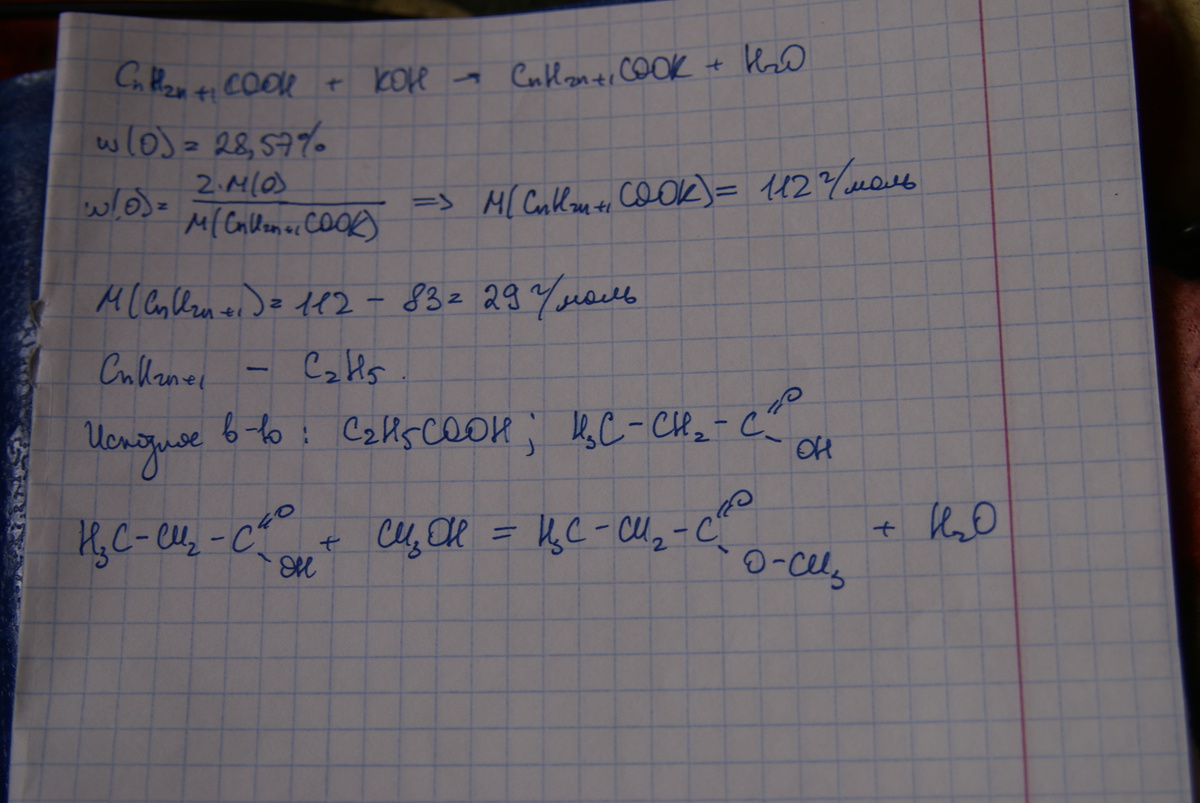 CnH2n+1COOH + KOH → CnH2n+1COOK + H2O
w(O) = 28,57%
w(O) = 2·M(O) / M(CnH2n+1COOK) => M(CnH2n+1COOK) = 112 г/моль
M(CnH2n+1) = 112 - 83 = 29 г/моль
CnH2n+1 - C2H5.
Исходное в-во: C2H5COOH; H3C-CH2-C=O -OH
H3C-CH2-C=O -OH + CH3OH = H3C-CH2-C=O -O-CH3 + H2O